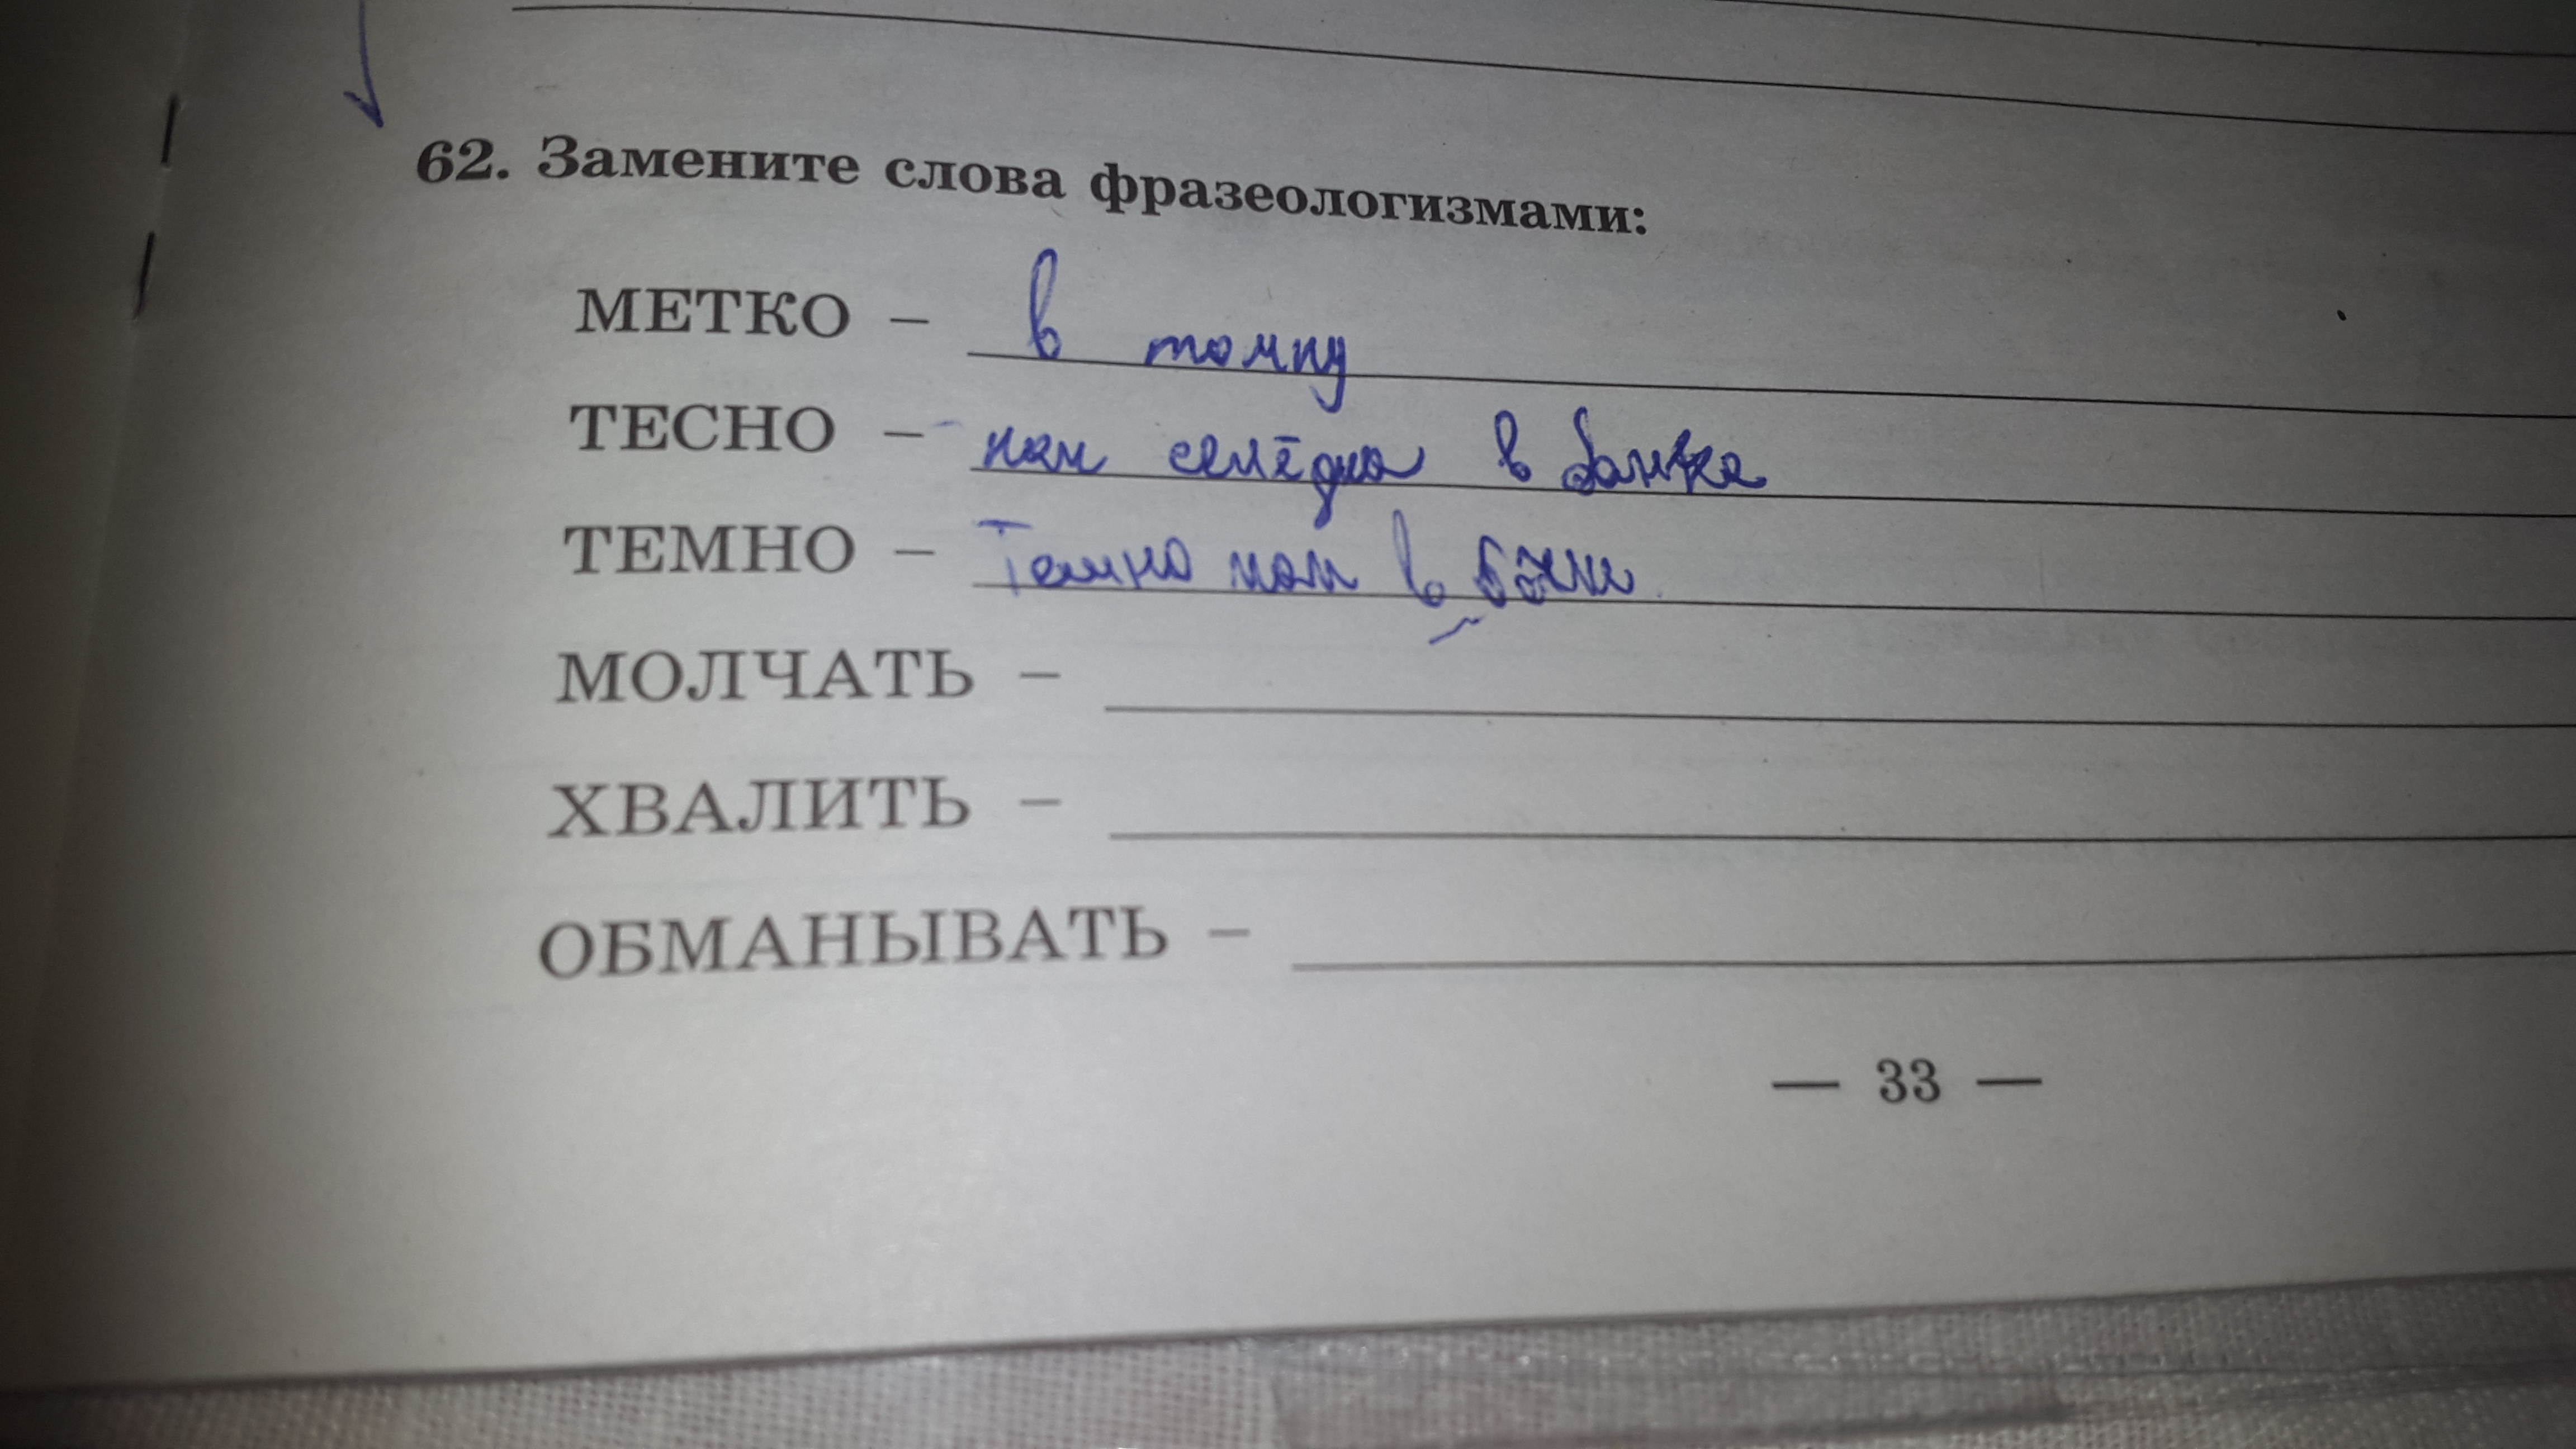 62. Замените слова фразеологизмами:
МЕТКО – в точку
ТЕСНО – как селёдка в банке
ТЕМНО – Темно как в бочке
МОЛЧАТЬ –
ХВАЛИТЬ –
ОБМАНЫВАТЬ –
— 33 —